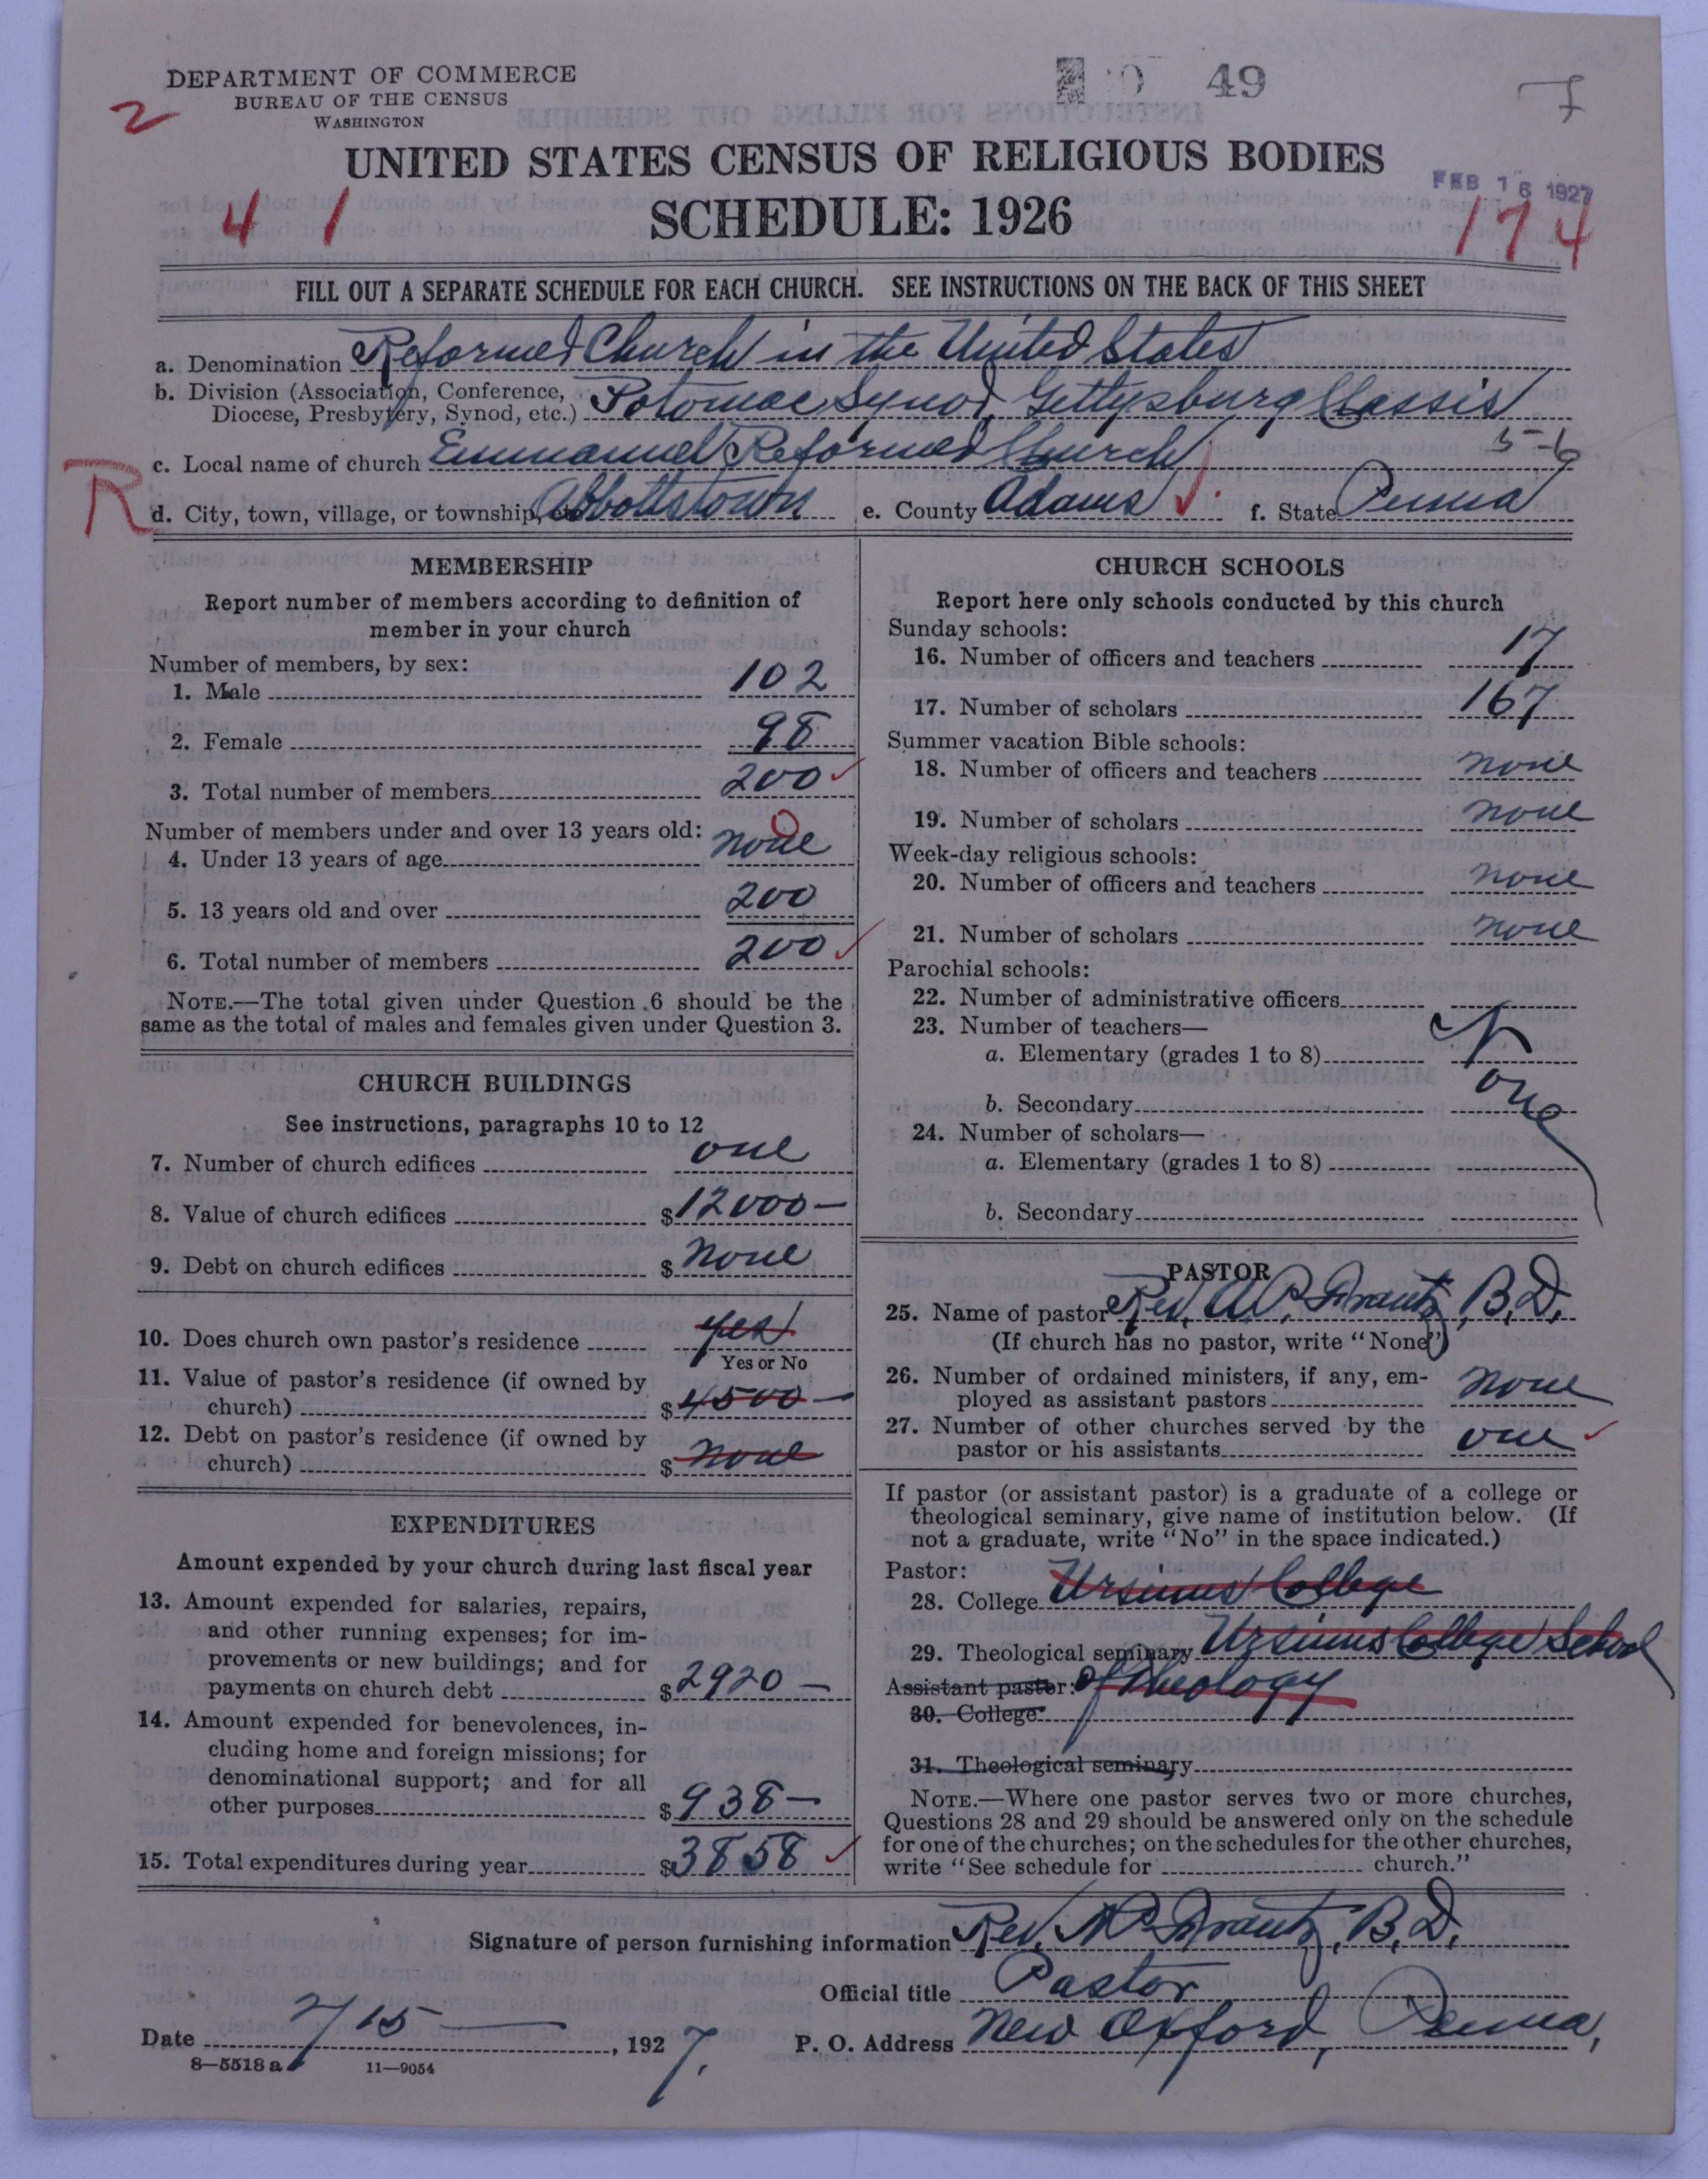 DEPARTMENT OF COMMERCE
BUREAU OF THE CENSUS
WASHINGTON
49
2
UNITED STATES CENSUS OF RELIGIOUS BODIES
FEB 16 1927
4 1
SCHEDULE: 1926
174
FILL OUT A SEPARATE SCHEDULE FOR EACH CHURCH. SEE INSTRUCTIONS ON THE BACK OF THIS SHEET
a. Denomination Reformed Church in the United States
b. Division (Association, Conference, Diocese, Presbytery, Synod, etc.) Potomac Synod, Gettysburg Classis
5-6
c. Local name of church Emmanuel Reformed Church
R
d. City, town, village, or township, etc. Abbottstown e. County Adams f. State Penna
MEMBERSHIP
Report number of members according to definition of
member in your church
Number of members, by sex:
1. Male 102
2. Female 98
3. Total number of members 200
Number of members under and over 13 years old:
4. Under 13 years of age none 0
5. 13 years old and over 200
6. Total number of members 200
NOTE.—The total given under Question 6 should be the
same as the total of males and females given under Question 3.
CHURCH BUILDINGS
See instructions, paragraphs 10 to 12
7. Number of church edifices one
8. Value of church edifices $12000—
9. Debt on church edifices $ none
10. Does church own pastor's residence yes
Yes or No
11. Value of pastor's residence (if owned by
church) $4500—
12. Debt on pastor's residence (if owned by
church) $ none
EXPENDITURES
Amount expended by your church during last fiscal year
13. Amount expended for salaries, repairs,
and other running expenses; for im-
provements or new buildings; and for
payments on church debt $2920—
14. Amount expended for benevolences, in-
cluding home and foreign missions; for
denominational support; and for all
other purposes $938—
15. Total expenditures during year $3858
CHURCH SCHOOLS
Report here only schools conducted by this church
Sunday schools:
16. Number of officers and teachers 17
17. Number of scholars 167
Summer vacation Bible schools:
18. Number of officers and teachers none
19. Number of scholars none
Week-day religious schools:
20. Number of officers and teachers none
21. Number of scholars none
Parochial schools:
22. Number of administrative officers
23. Number of teachers—
a. Elementary (grades 1 to 8)
none
b. Secondary
24. Number of scholars—
a. Elementary (grades 1 to 8)
b. Secondary
PASTOR
25. Name of pastor Rev. A. P. Frantz, B.D.
(If church has no pastor, write "None")
26. Number of ordained ministers, if any, em-
ployed as assistant pastors none
27. Number of other churches served by the
pastor or his assistants one
If pastor (or assistant pastor) is a graduate of a college or
theological seminary, give name of institution below. (If
not a graduate, write "No" in the space indicated.)
Pastor:
28. College Ursinus College
29. Theological seminary Ursinus College School
Assistant pastor: of Theology
30. College
31. Theological seminary
NOTE.—Where one pastor serves two or more churches,
Questions 28 and 29 should be answered only on the schedule
for one of the churches; on the schedules for the other churches,
write "See schedule for church."
Signature of person furnishing information Rev. A. P. Frantz, B.D.
Official title Pastor
Date 2/15—, 1927. P. O. Address New Oxford, Penna,
8—5518a 11—9054